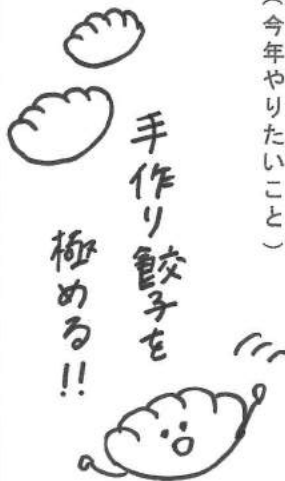 （今年やりたいこと）
手作り餃子を
極める!!